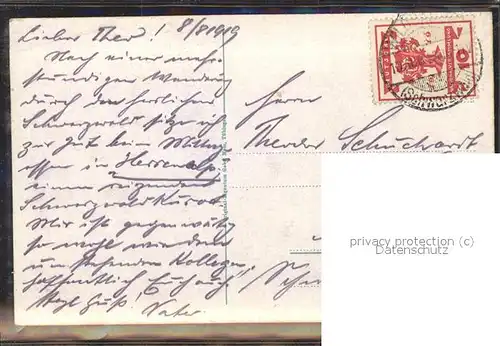 Lieber Theod! 8/8 1919
Nach einer mehr-
stündigen Wanderung
durch den herrlichen
Schwarzwald sitze ich
zur Zeit beim Mittag-
essen in Herrenalb
einem reizenden
Schwarzwaldkurort.
Mir ist gegenwärtig
so wohl wie dem
umstehenden Kollegen
hoffentlich Euch auch!
Hzl. Gruß! Vater
Herrn
Theodor Schuchardt
privacy protection (c)
Datenschutz